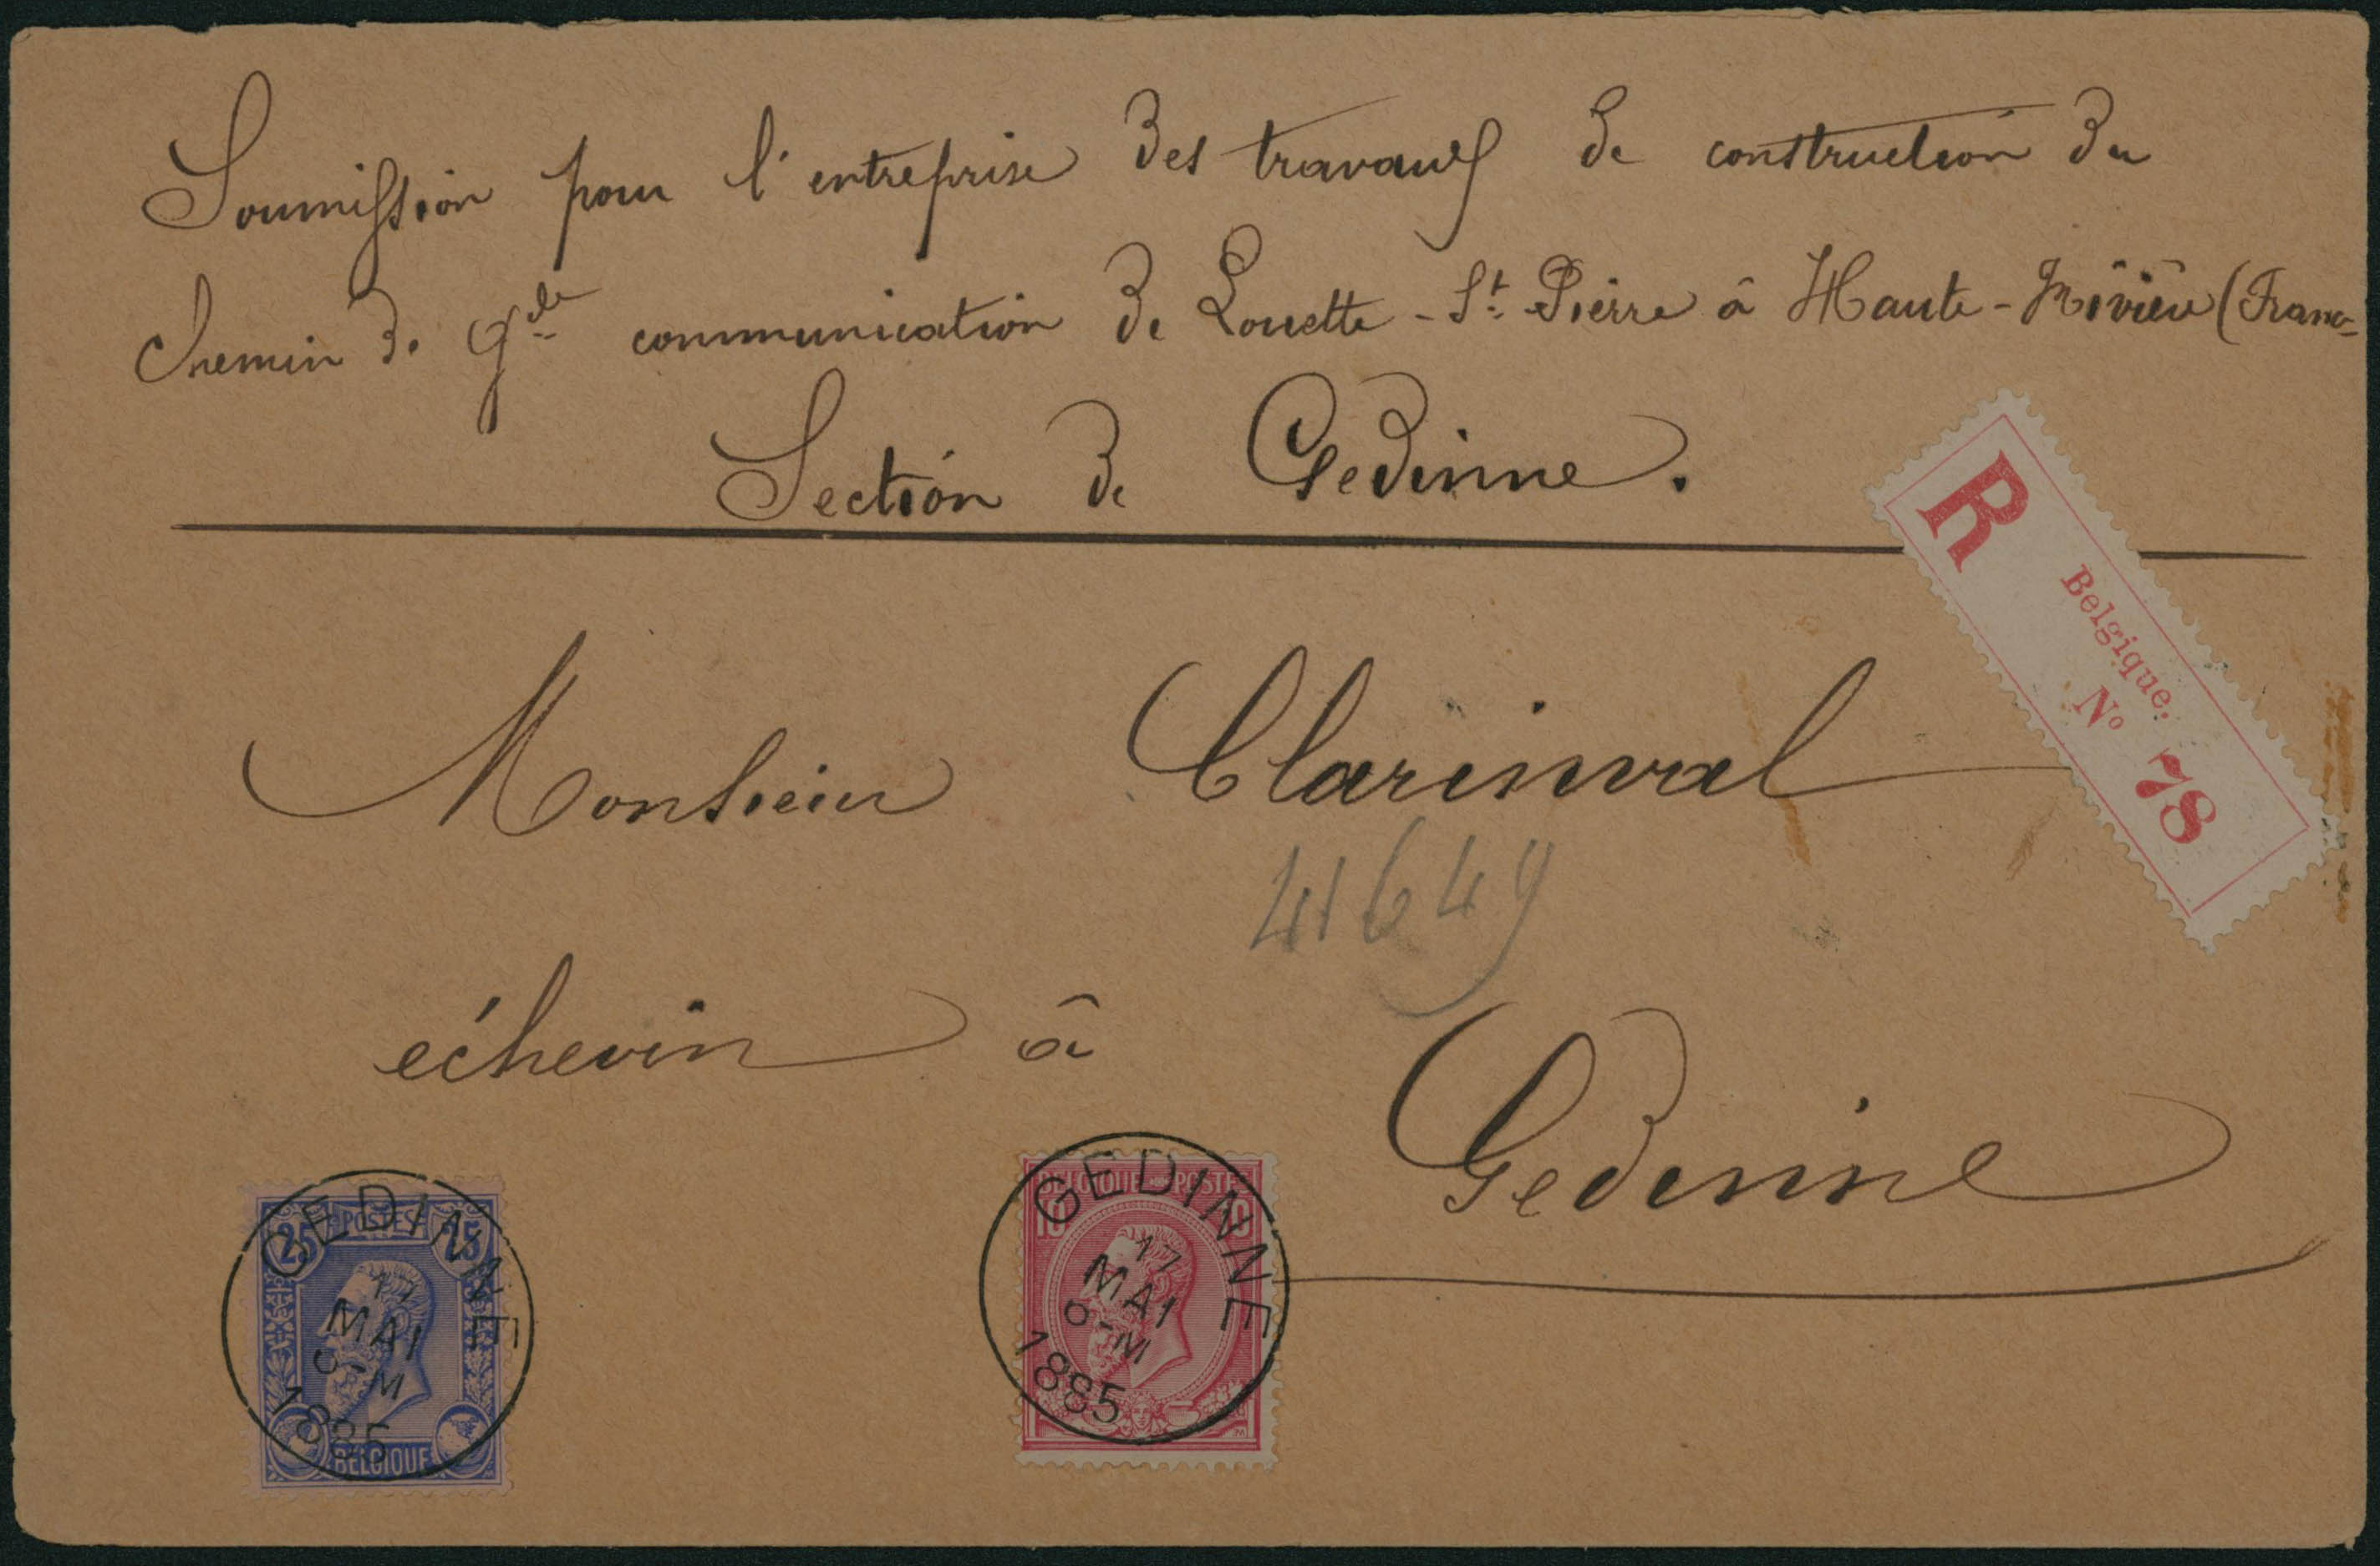 Soumission pour l'entreprise des travaux de construction du
Chemin de Gde communication de Louette-St Pierre à Haute-Rivière (France
Section de Gedinne.
R
Belgique.
No 78
Monsieur Clarinval
41649
échevin à
Gedinne
25 POSTES 25
GEDINNE
17
MAI
M
1885
BELGIQUE
BELGIQUE POSTES
10 10
GEDINNE
17
MAI
M
1885